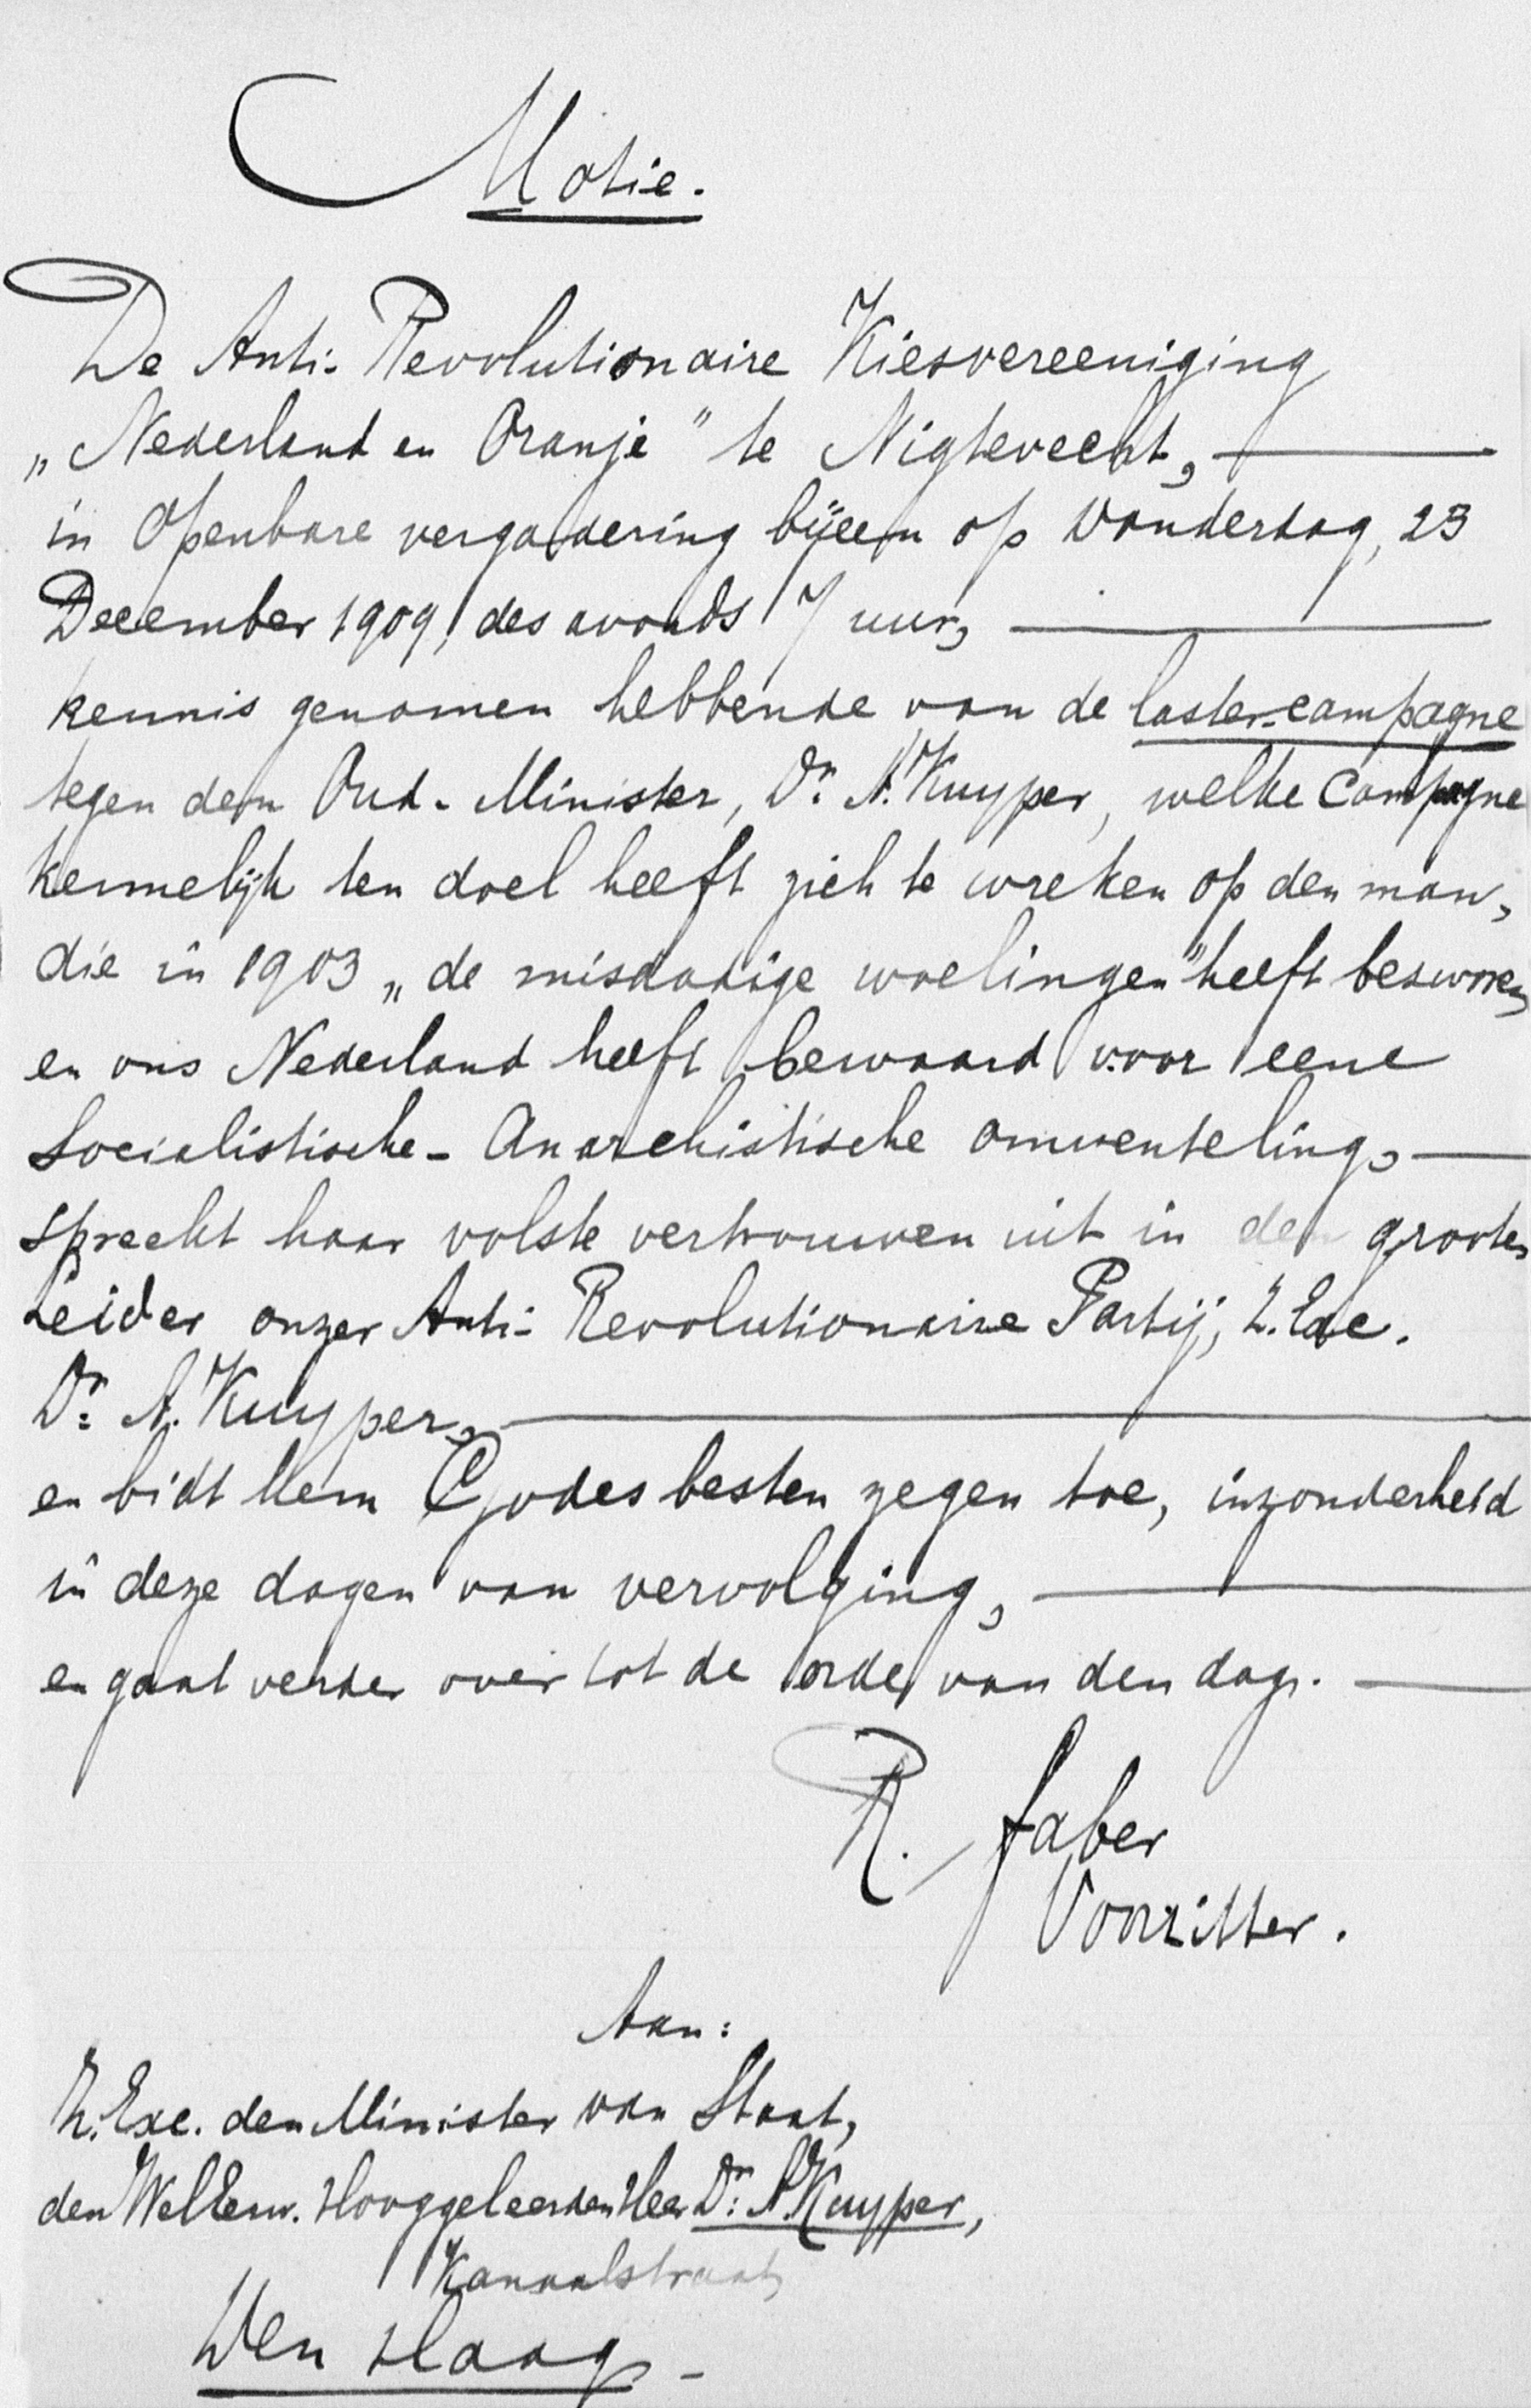 Motie.
De Anti-Revolutionaire Kiesvereeniging
„Nederland en Oranje" te Nigtevecht,
in Openbare vergadering bijeen op Donderdag, 23
December 1909, des avonds 7 uur,
kennis genomen hebbende van de laster-campagne
tegen den Oud-Minister, Dr. A. Kuyper, welke Campagne
kennelijk ten doel heeft zich te wreken op den man,
die in 1903 „de misdadige woelingen" heeft bezworen
en ons Nederland heeft bewaard voor eene
Socialistische-Anarchistische omwenteling,
spreekt haar volste vertrouwen uit in den grooten
Leider onzer Anti-Revolutionaire Partij, Z. Exc.
Dr. A. Kuyper,
en bidt Hem Godes besten zegen toe, inzonderheid
in deze dagen van vervolging,
en gaat verder over tot de orde van den dag.
R. Faber
Voorzitter.
Aan:
Z. Exc. den Minister van Staat,
den WelEerw. Hooggeleerden Heer Dr. A. Kuyper,
Kanaalstraat
Den Haag